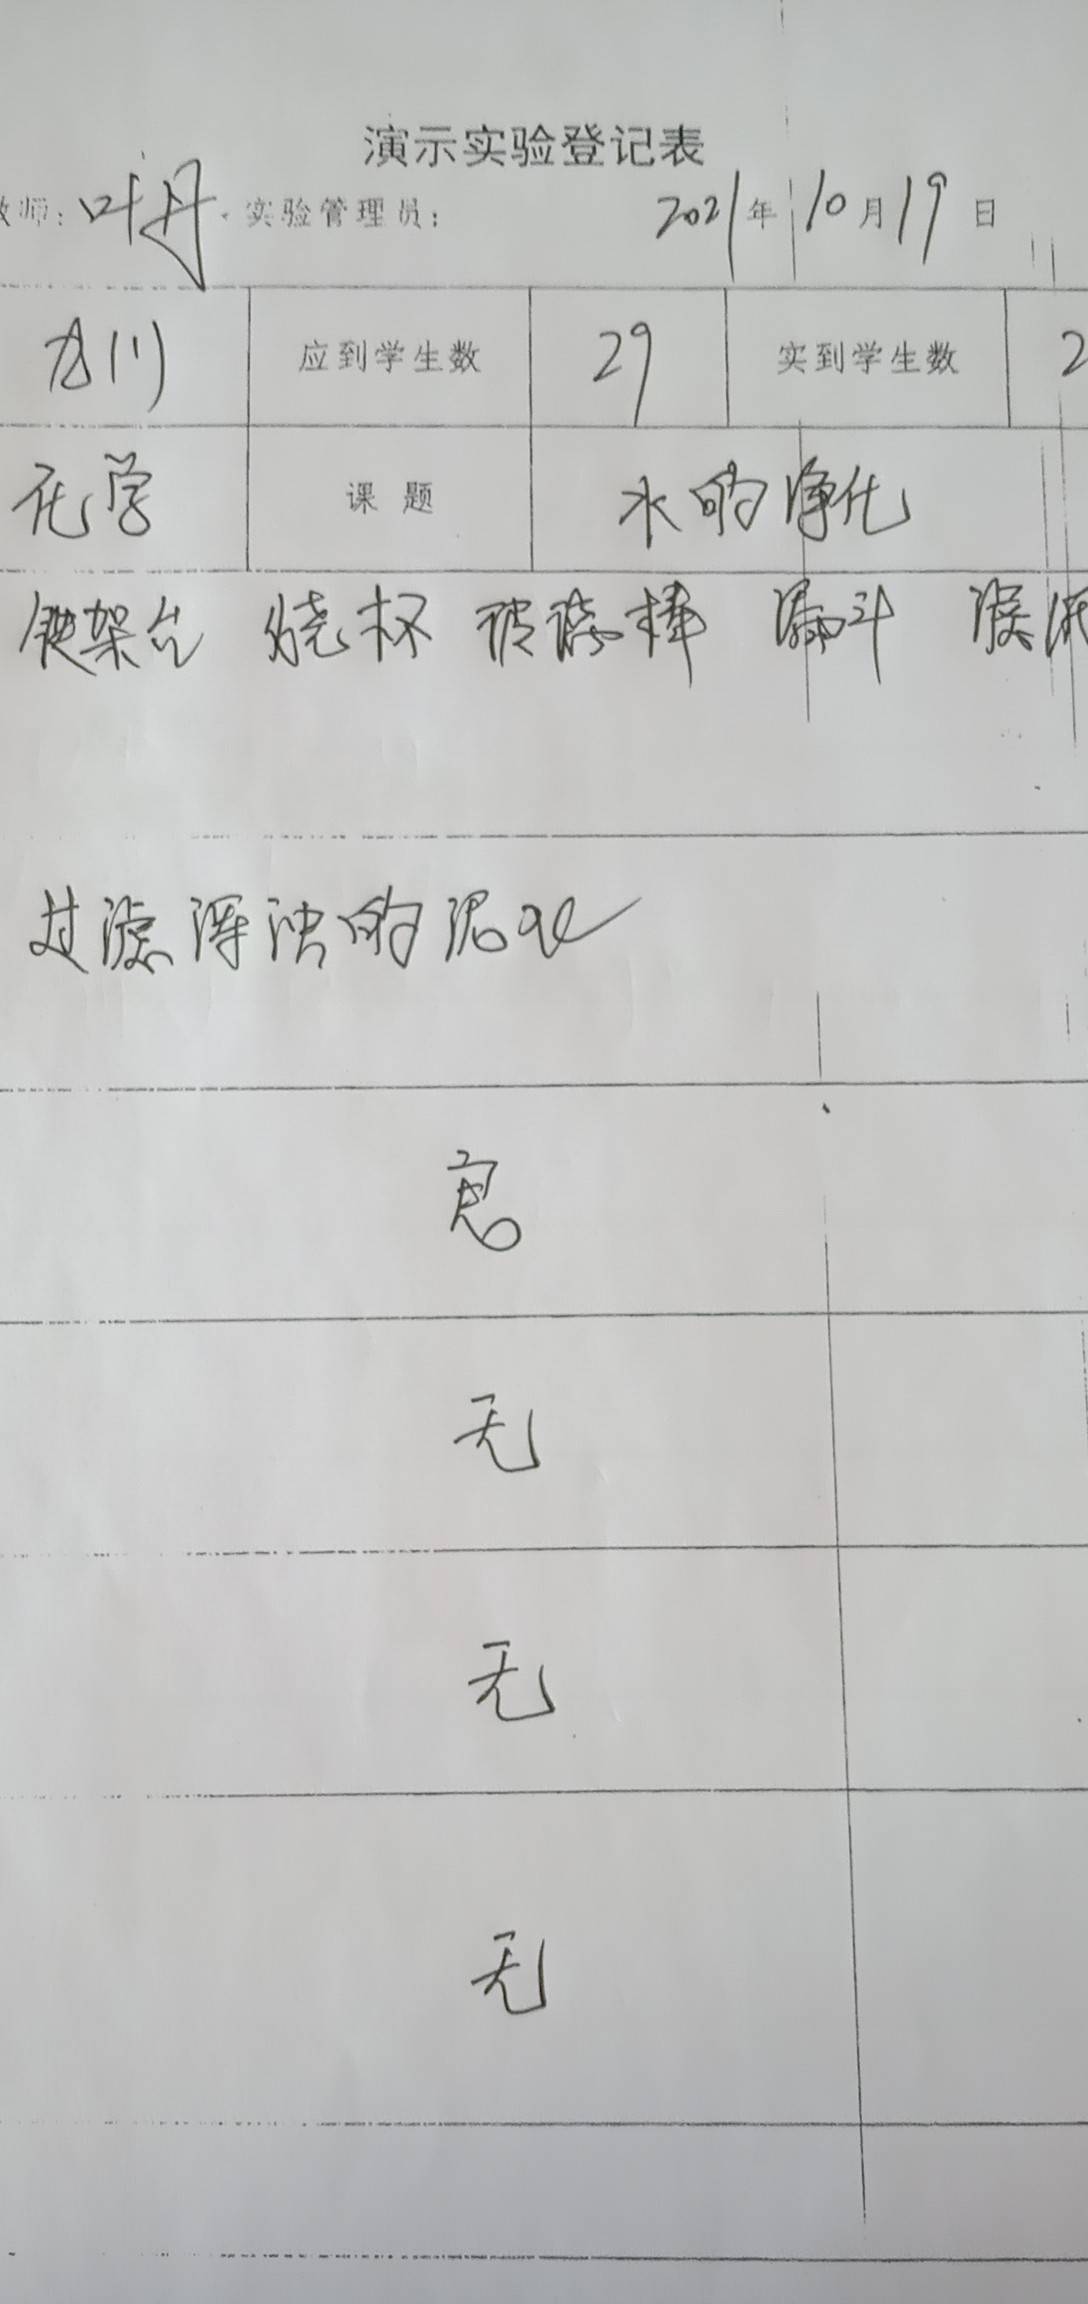 演示实验登记表
教师: 叶丹 实验管理员: 2021年10月19日
九(1) 应到学生数 29 实到学生数 2
化学 课题 水的净化
铁架台 烧杯 玻璃棒 漏斗
过滤浑浊的泥水
无
无
无